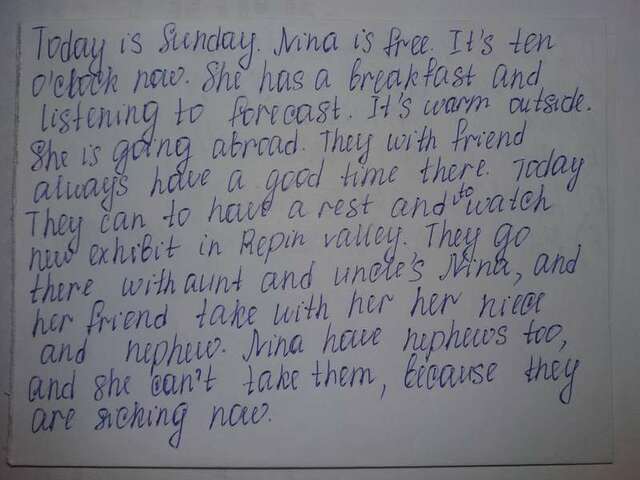 Today is Sunday. Nina is free. It's ten
o'clock now. She has a breakfast and
listening to forecast. It's warm outside.
She is going abroad. They with friend
always have a good time there. Today
They can to have a rest and to watch
new exhibit in Repin valley. They go
there with aunt and uncle's Nina, and
her friend take with her her niece
and nephew. Nina have nephews too,
and she can't take them, because they
are skiing now.